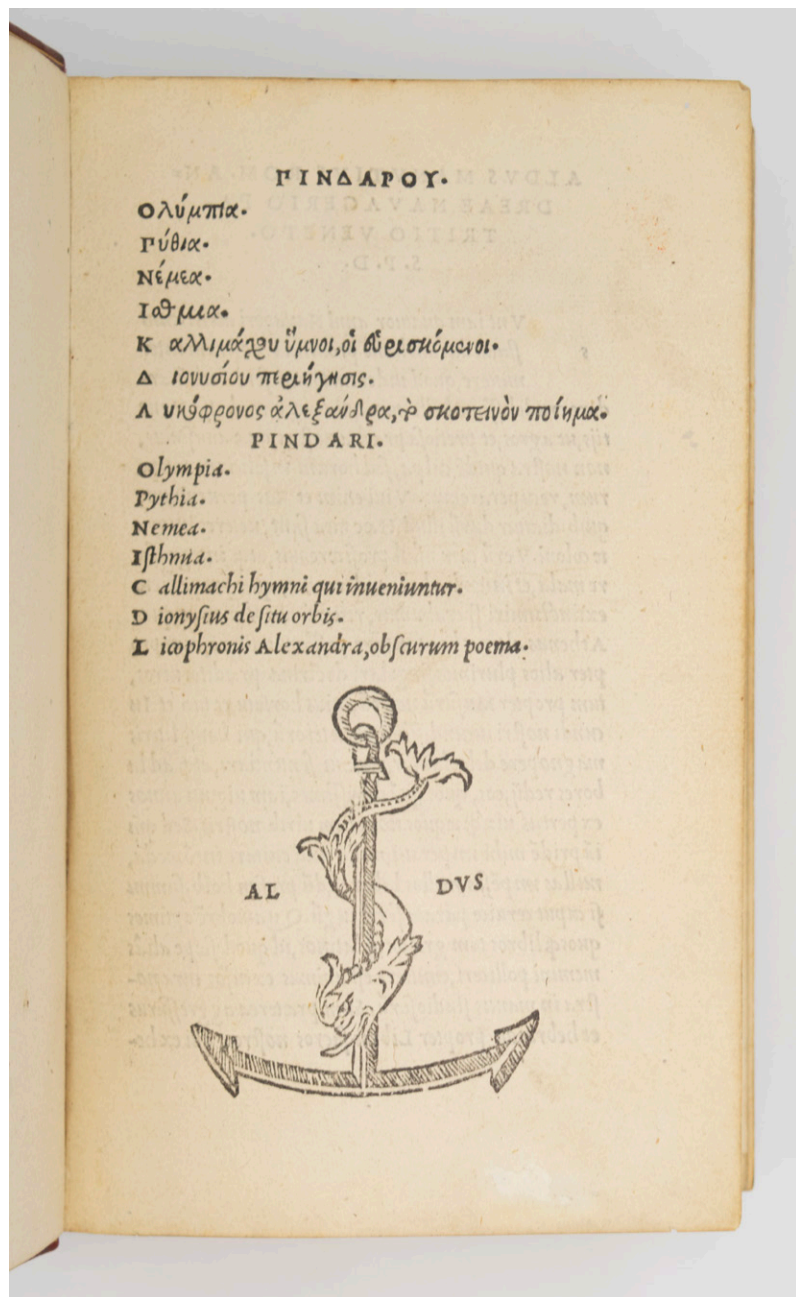 ΠΙΝΔΑΡΟΥ.
Ολύμπια.
Πύθια.
Νέμεα.
Ισθμια.
Κ αλλιμάχου ὕμνοι, οἱ εὑρισκόμενοι.
Δ ιονυσίου περιήγησις.
Λ υκόφρονος ἀλεξάνδρα, τὸ σκοτεινὸν ποίημα.
PINDARI.
Olympia.
Pythia.
Nemea.
Iſthmia.
C allimachi hymni qui inueniuntur.
D ionyſius de ſitu orbis.
L icophronis Alexandra, obſcurum poema.
AL DVS